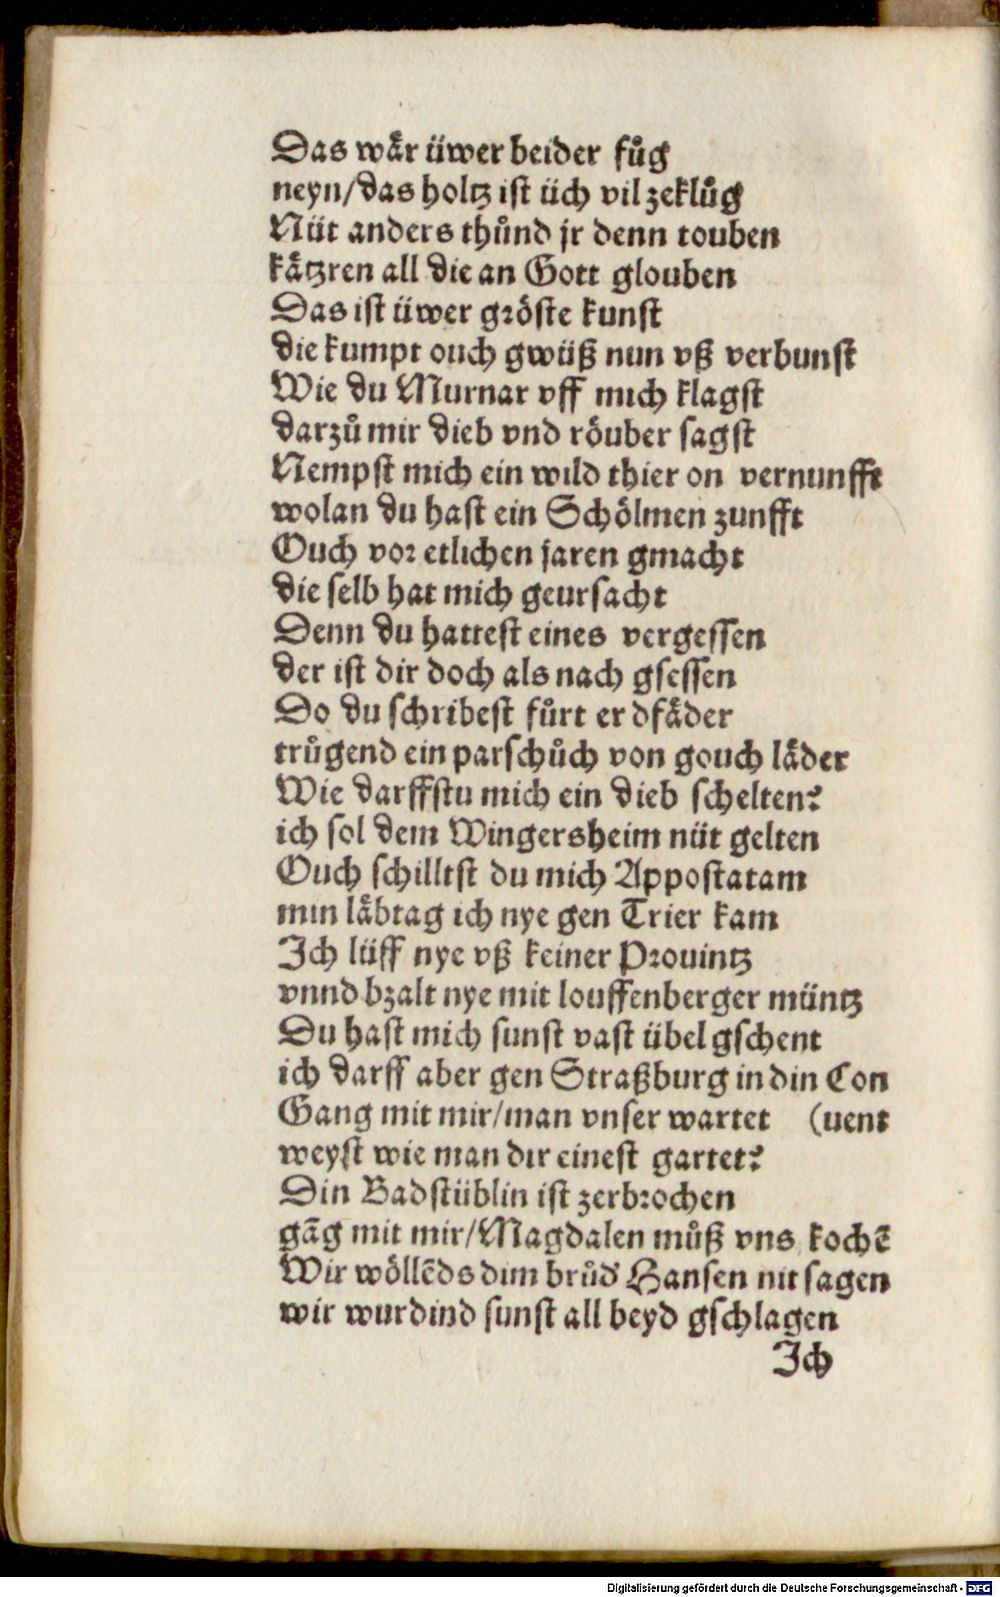 Das wǎr üwer beider fůg
neyn/das holtz ist üch vil zeklůg
Nüt anders thůnd jr denn touben
kåtzren all die an Gott glouben
Das ist üwer gröste kunst
die kumpt ouch gwüß nun vß verbunst
Wie du Murnar vff mich klagst
darzů mir dieb vnd röuber sagst
Nempst mich ein wild thier on vernunfft
wolan du hast ein Schölmen zunfft
Ouch vor etlichen jaren gmacht
die selb hat mich geursacht
Denn du hattest eines vergessen
der ist dir doch als nach gsessen
Do du schribest fůrt er dfåder
trůgend ein parschůch von gouch låder
Wie darffstu mich ein dieb schelten?
ich sol dem Wingersheim nüt gelten
Ouch schilltst du mich Appostatam
min låbtag ich nye gen Trier kam
Ich lüff nye vß keiner Prouintz
vnnd bzalt nye mit louffenberger müntz
Du hast mich sunst vast übel gschent
ich darff aber gen Straßburg in din Con
Gang mit mir/man vnser wartet (uent
weyst wie man dir einest gartet?
Din Badstüblin ist zerbrochen
gāg mit mir/Magdalen můß vns kochē
Wir wöllēds dim brůd' Hansen nit sagen
wir wurdind sunst all beyd gschlagen
Ich
Digitalisierung gefördert durch die Deutsche Forschungsgemeinschaft - DFG